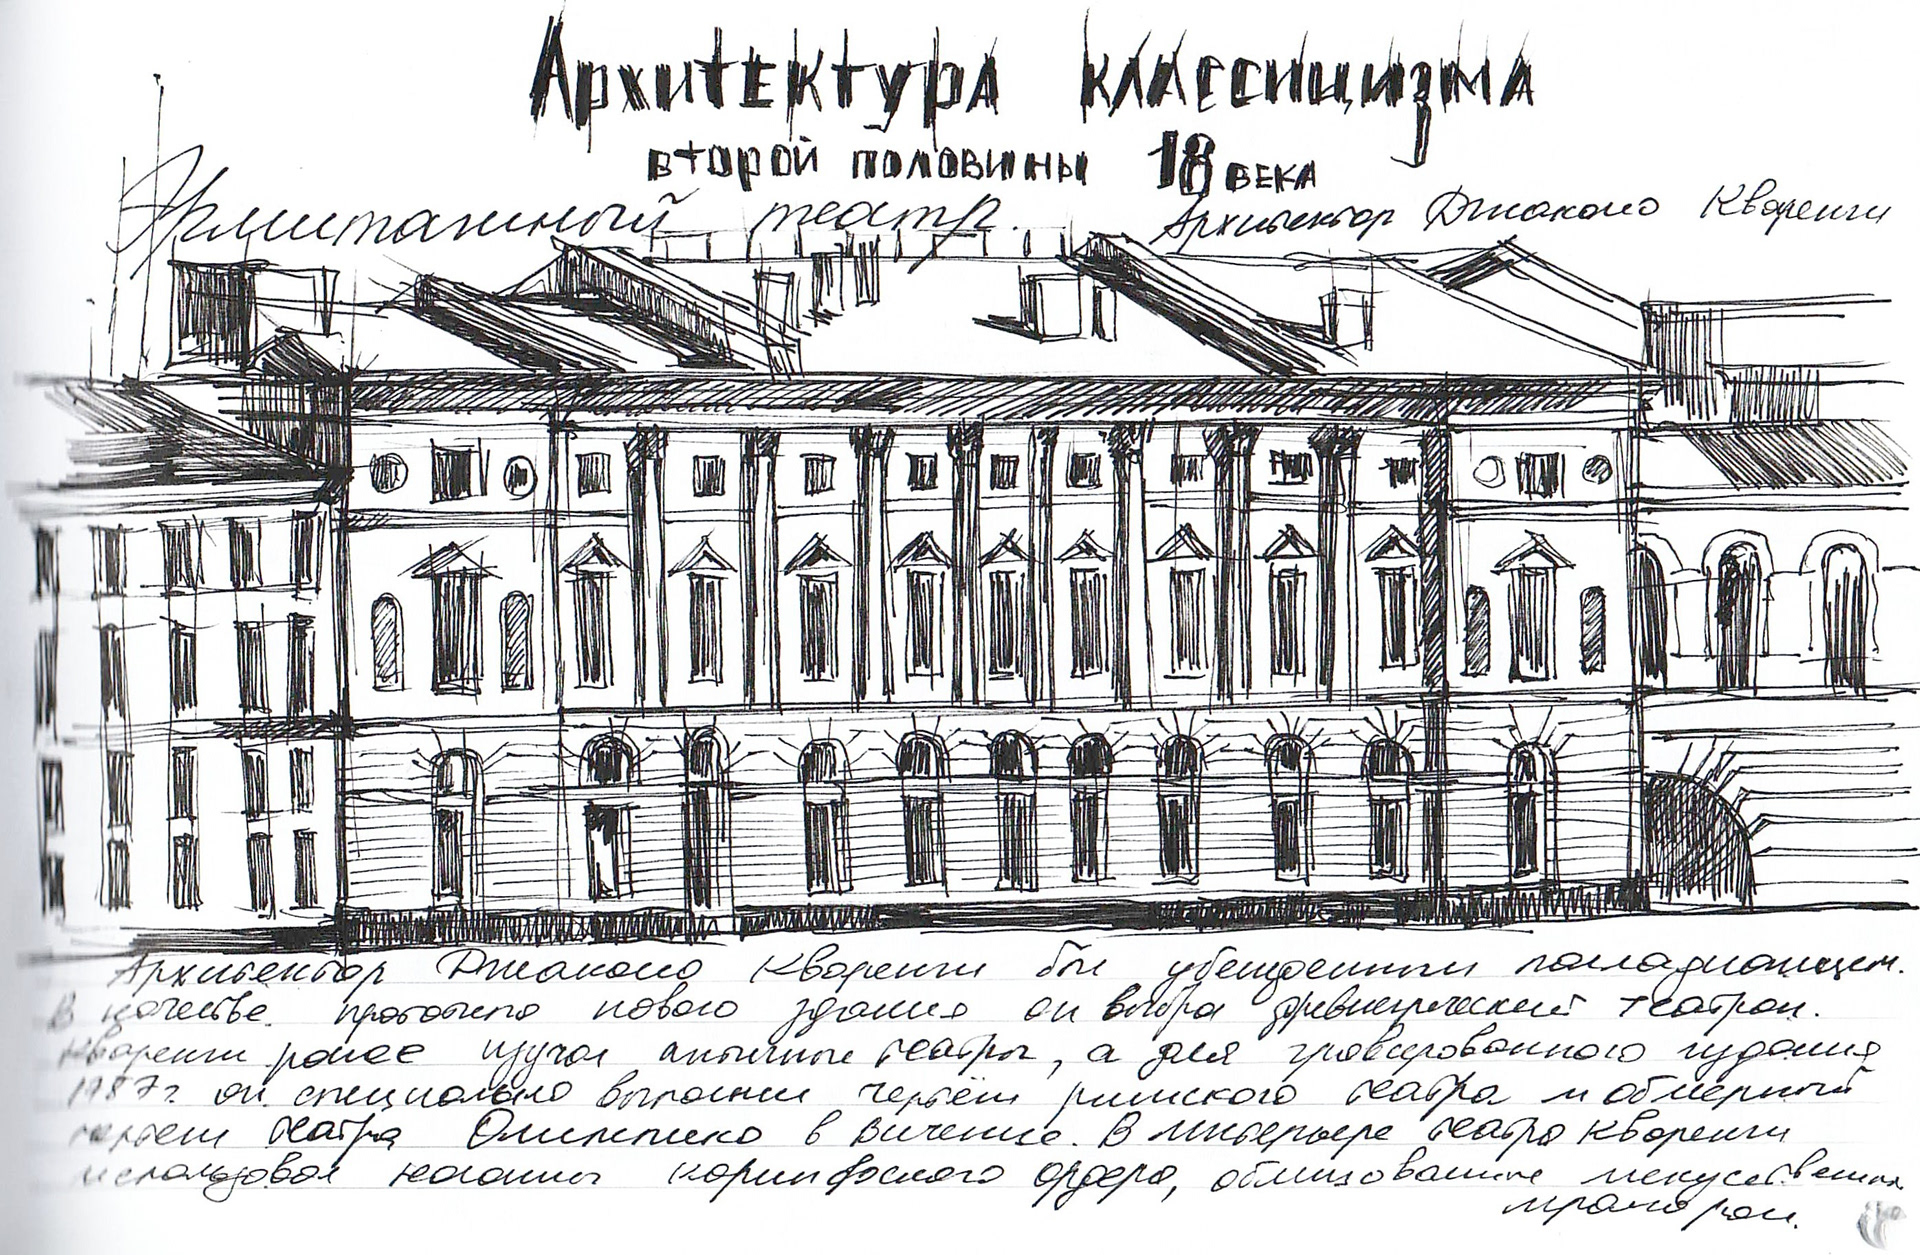 Архитектура классицизма
второй половины 18 века
Эрмитажный театр.
Архитектор Джакомо Кваренги
Архитектор Джакомо Кваренги был убежденным палладианцем.
В качестве прототипа нового здания он выбра древнегреческий театрон.
Кваренги ранее изучал античные театры, а для гравированного издания
1987г. он специально выполнил чертеж римского театра и обмерный
чертеж театра Олимпико в Виченце. В интерьере театра Кваренги
использовал колонны коринфского ордера, облицованные искусственным
мрамором.